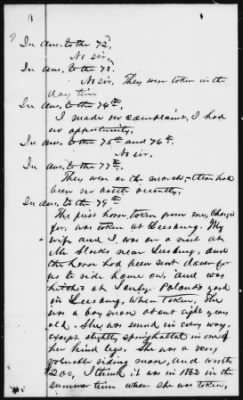 9
In ans. to the 72d.
No sir.
In ans. to the 73.
No sir. They were taken in the
day time
In ans. to the 74th.
I made no complaint, I had
no opportunity.
In ans. to the 75th and 76th.
No sir.
In ans. to the 77th.
They were on the march - there had
been no battle recently.
In ans. to the 79th
The first horse, taken from me, charged
for, was taken at Leesburg. My
wife and I, was on a visit at
Mr near Leesburg, and
the horse had been sent down for
us to ride home on, and was
hitched at yard
in Leesburg, when taken, she
was a bay mare about eight years
old. She was sound in every way,
except slightly springhalted in one of
her hind legs. She was a very
valuable riding mare, and worth
$200, I think it was in 1863 in the
summer time when she was taken,